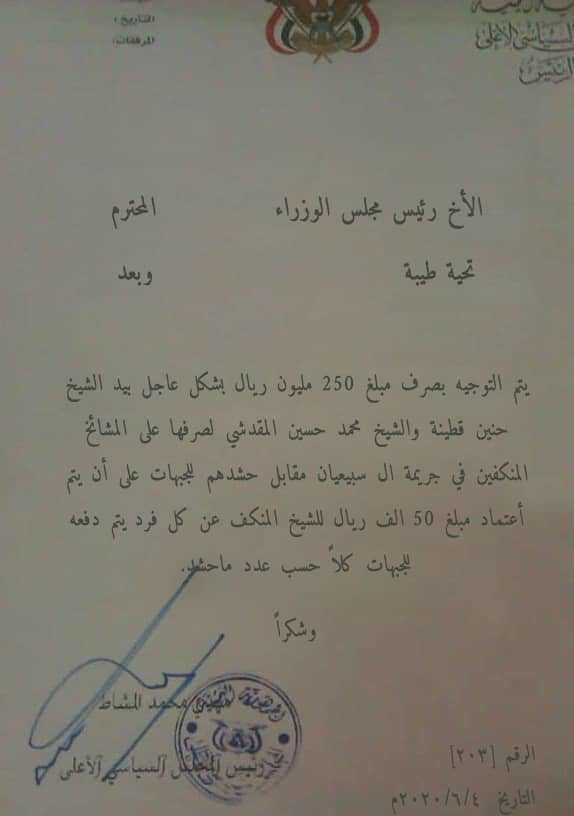 السياسي الأعلى
الرئيس
التاريخ :
المرفقات:
الأخ رئيس مجلس الوزراء المحترم
تحية طيبة وبعد
يتم التوجيه بصرف مبلغ 250 مليون ريال بشكل عاجل بيد الشيخ
حنين قطينة والشيخ محمد حسين المقدشي لصرفها على المشائخ
المنكفين في جريمة ال سبيعيان مقابل حشدهم للجبهات على أن يتم
أعتماد مبلغ 50 الف ريال للشيخ المنكف عن كل فرد يتم دفعه
للجبهات كلاً حسب عدد ماحشد.
وشكراً
مهدي محمد المشاط
رئيس المجلس السياسي الأعلى
الرقم [٢٠٣]
التاريخ ٢٠٢٠/٦/٤م